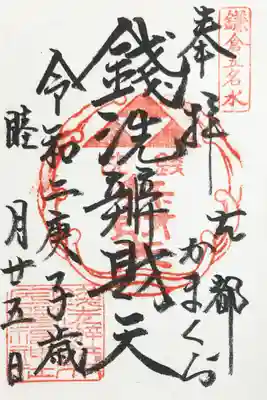 鎌倉五名水
奉拝
古都かまくら
錢洗辨財天
令和二庚子歳
睦月廿五日